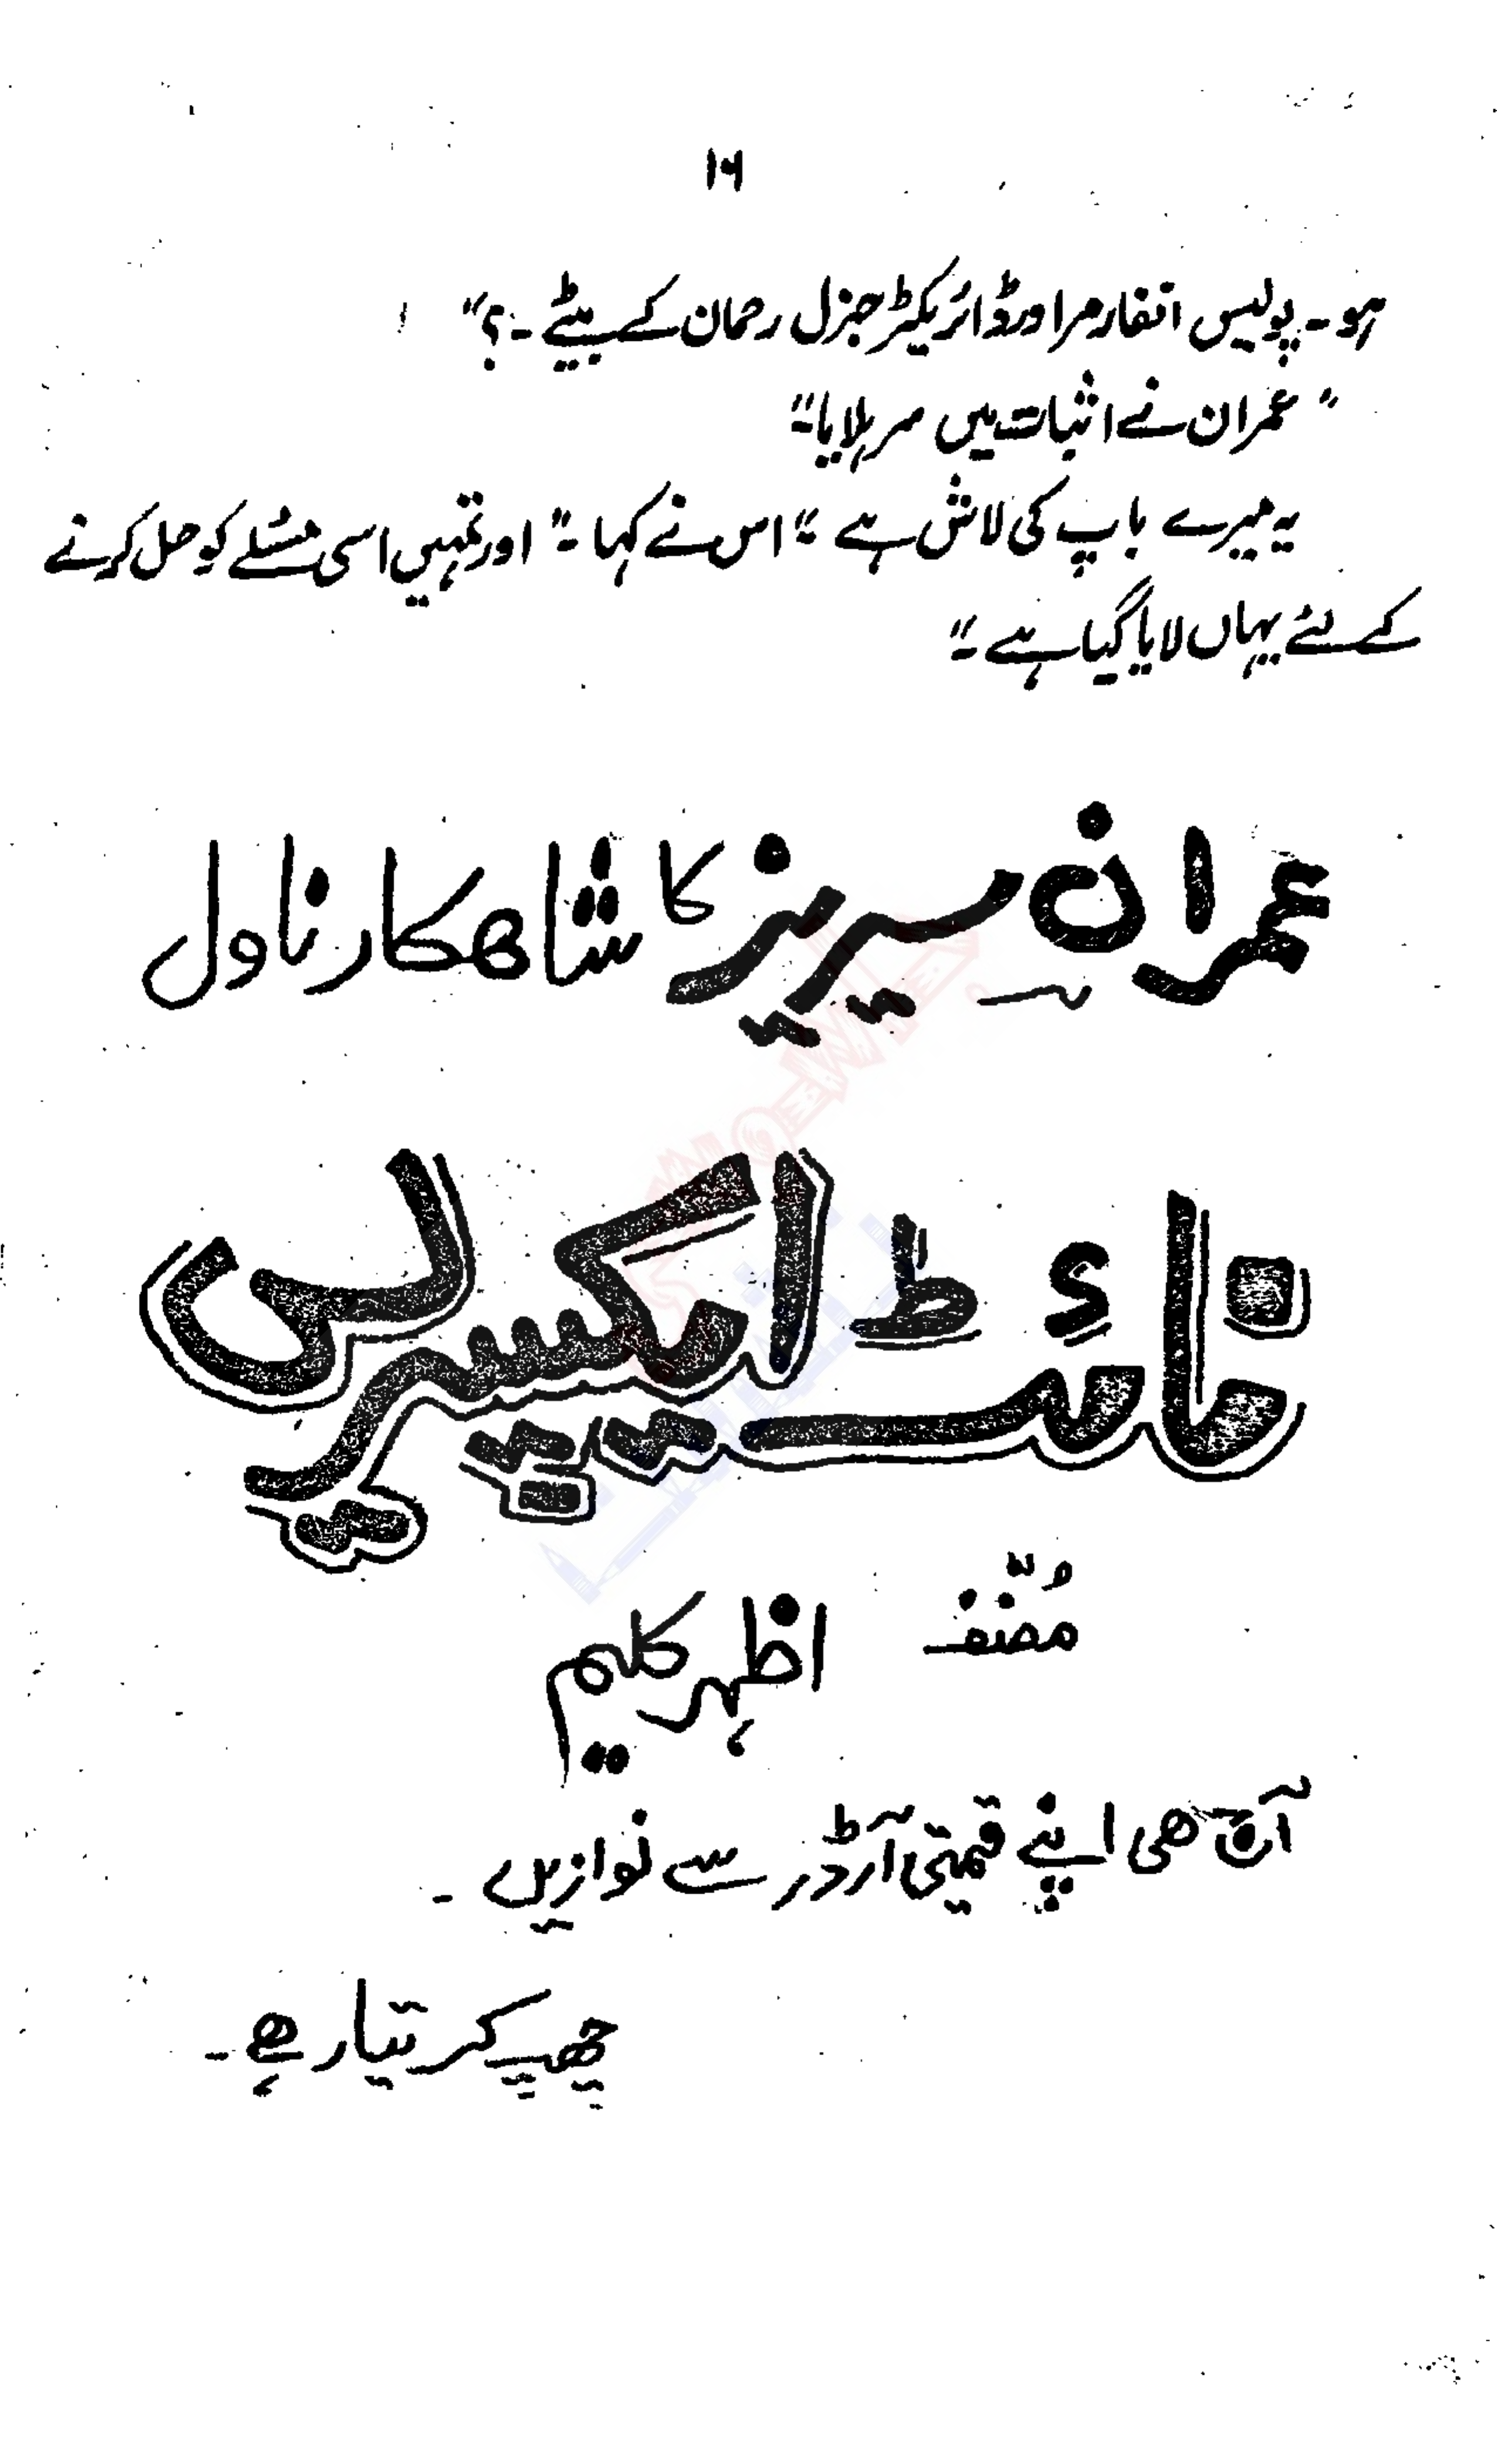 ۱۶
ہو۔ پولیس انفارمر اور ڈائریکٹر جنرل رحمان کے بیٹے۔؟"
" عمران نے اثبات میں سر ہلایا۔"
یہ میرے باپ کی لاش ہے۔" اس نے کہا۔" اور تمہیں اسی مسئلے کو حل کرنے
کے لئے یہاں لایا گیا ہے۔"
عمران سیریز کا شاھکار ناول
نائٹ ایکسپریس
مُصنّف اظہر کلیم
آج ھی اپنے قیمتی آرڈر سے نوازیں۔
چھپ کر تیار ھے۔